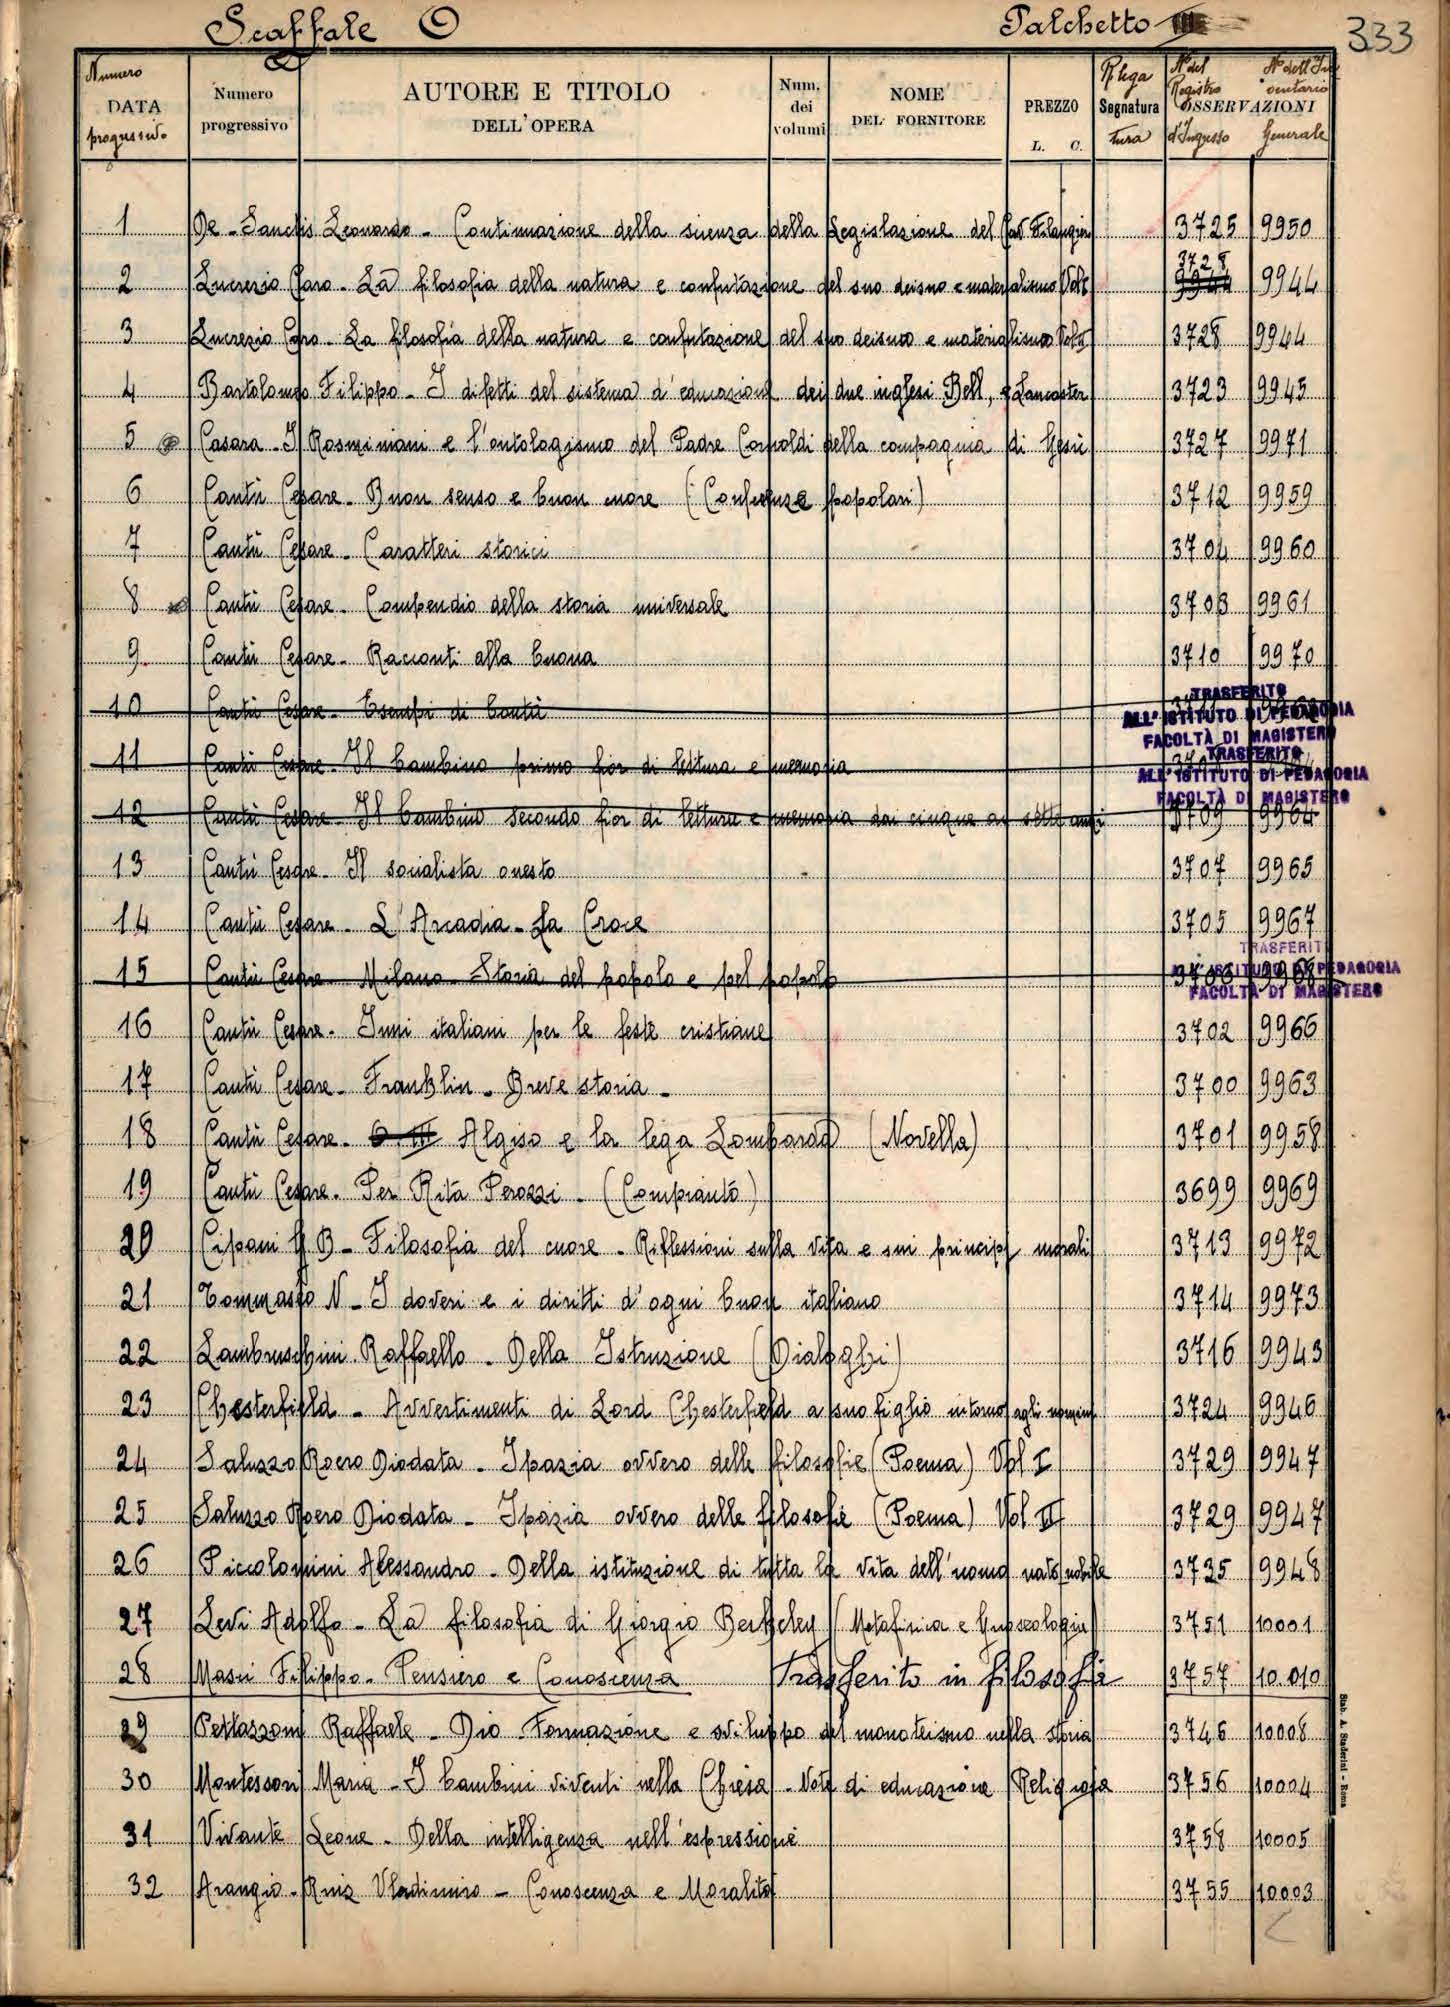 Scaffale O Palchetto III 333
Numero DATA progressivo
Numero progressivo
AUTORE E TITOLO DELL'OPERA
Num. dei volumi
NOME DEL FORNITORE
PREZZO L. C.
Rilega Segnatura tura
N° del Registro d'Ingresso OSSERVAZIONI N° dell'Inventario Generale
1 De-Sanctis Leonardo - Continuazione della scienza della Legislazione del Cav Filangieri 3725 9950
2 Lucrezio Caro - La filosofia della natura e confutazione del suo deismo e materialismo Vol I 3728 9944
3 Lucrezio Caro - La filosofia della natura e confutazione del suo deismo e materialismo Vol II 3728 9944
4 Bartolomeo Filippo - I difetti del sistema d'educazione dei due inglesi Bell, e Lancaster 3723 9945
5 Casara - I Rosminiani e l'ontologismo del Padre Cornoldi della compagnia di Gesù 3727 9971
6 Cantù Cesare - Buon senso e buon cuore (Conferenze popolari) 3712 9959
7 Cantù Cesare - Caratteri storici 3704 9960
8 Cantù Cesare - Compendio della storia universale 3703 9961
9 Cantù Cesare - Racconti alla buona 3710 9970
10 Cantù Cesare - Esempi di bontà
TRASFERITO
ALL'ISTITUTO DI PEDAGOGIA
FACOLTÀ DI MAGISTERO
11 Cantù Cesare - Il bambino primo fior di lettura e memoria
TRASFERITO
ALL'ISTITUTO DI PEDAGOGIA
FACOLTÀ DI MAGISTERO
12 Cantù Cesare - Il bambino secondo fior di lettura e memoria dai cinque ai sette anni 3709 9964
13 Cantù Cesare - Il socialista onesto 3707 9965
14 Cantù Cesare - L'Arcadia - La Croce 3705 9967
TRASFERITO
15 Cantù Cesare - Milano - Storia del popolo e pel popolo 3706 9968
ALL'ISTITUTO DI PEDAGOGIA
FACOLTÀ DI MAGISTERO
16 Cantù Cesare - Inni italiani per le feste cristiane 3702 9966
17 Cantù Cesare - Franklin - Breve storia - 3700 9963
18 Cantù Cesare - O III Algiso e la lega Lombarda (Novella) 3701 9958
19 Cantù Cesare - Per Rita Perozzi - (Compianto) 3699 9969
20 Cipani G B - Filosofia del cuore - Riflessioni sulla vita e sui principi morali 3713 9972
21 Tommaseo N - I doveri e i diritti d'ogni buon italiano 3714 9973
22 Lambruschini Raffaello - Della Istruzione (Dialoghi) 3716 9943
23 Chesterfield - Avvertimenti di Lord Chesterfield a suo figlio intorno agli uomini 3724 9946
24 Saluzzo Roero Diodata - Ipazia ovvero delle filosofie (Poema) Vol I 3729 9947
25 Saluzzo Roero Diodata - Ipazia ovvero delle filosofie (Poema) Vol II 3729 9947
26 Piccolomini Alessandro - Della istituzione di tutta la vita dell'uomo nato nobile 3735 9948
27 Levi Adolfo - La filosofia di Giorgio Berkeley (Metafisica e Gnoseologia) 3751 10001
28 Masci Filippo - Pensiero e Conoscenza Trasferito in filosofia 3757 10.010
29 Pettazzoni Raffaele - Dio - Formazione e sviluppo del monoteismo nella storia 3746 10008
30 Montessori Maria - I bambini viventi nella Chiesa - Note di educazione Religiosa 3756 10004
31 Vivante Leone - Della intelligenza nell'espressione 3758 10005
32 Arangio-Ruiz Vladimiro - Conoscenza e Moralità 3755 10003
Stab. A. Staderini - Roma